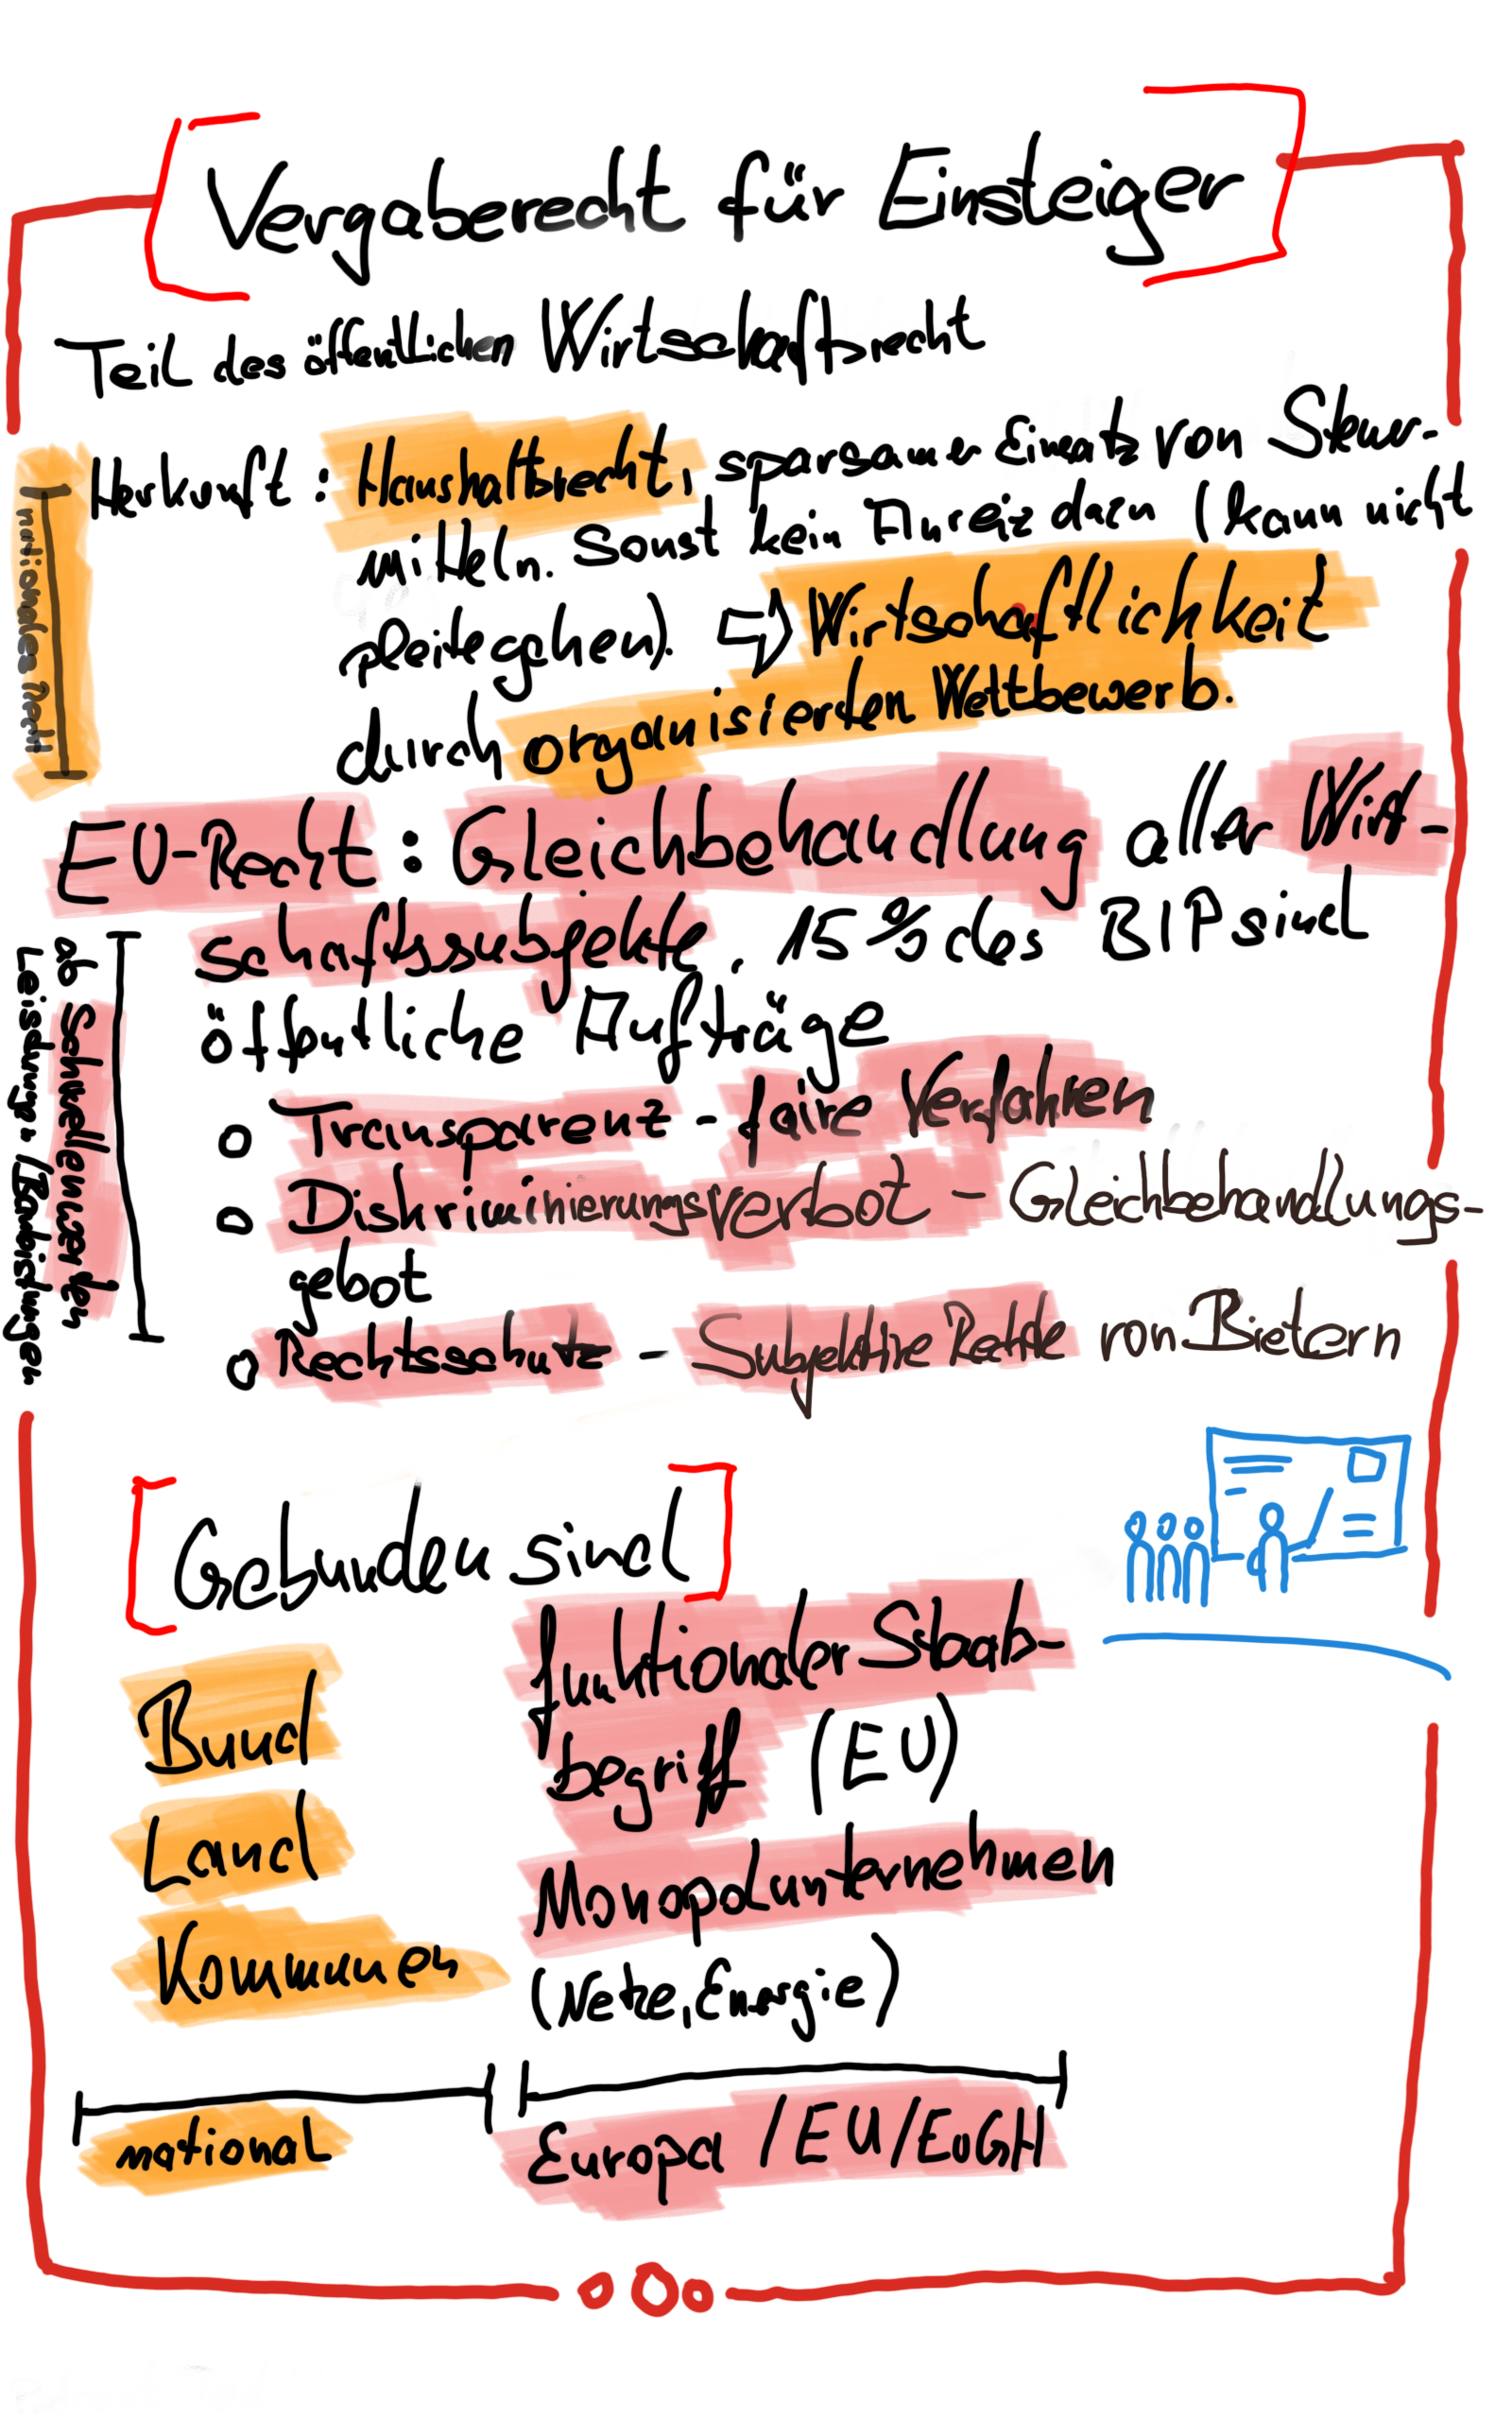 Vergaberecht für Einsteiger
Teil des öffentlichen Wirtschaftsrecht
Herkunft: Haushaltsrecht, sparsamer Einsatz von Steuer-
mitteln. Sonst kein Anreiz dazu (kann nicht
pleite gehen). ⇨ Wirtschaftlichkeit
durch organisierten Wettbewerb.
nationales Recht
EU-Recht: Gleichbehandlung aller Wirt-
schaftssubjekte. 15% des BIP sind
öffentliche Aufträge
o Transparenz - faire Verfahren
o Diskriminierungsverbot - Gleichbehandlungs-
gebot
o Rechtsschutz - Subjektive Rechte von Bietern
ab Schwellenwerten
Leistungen/Bauleistungen
Gebunden sind
Bund
Land
Kommunen
funktionaler Staats-
begriff (EU)
Monopolunternehmen
(Netze, Energie)
national
Europa/EU/EuGH